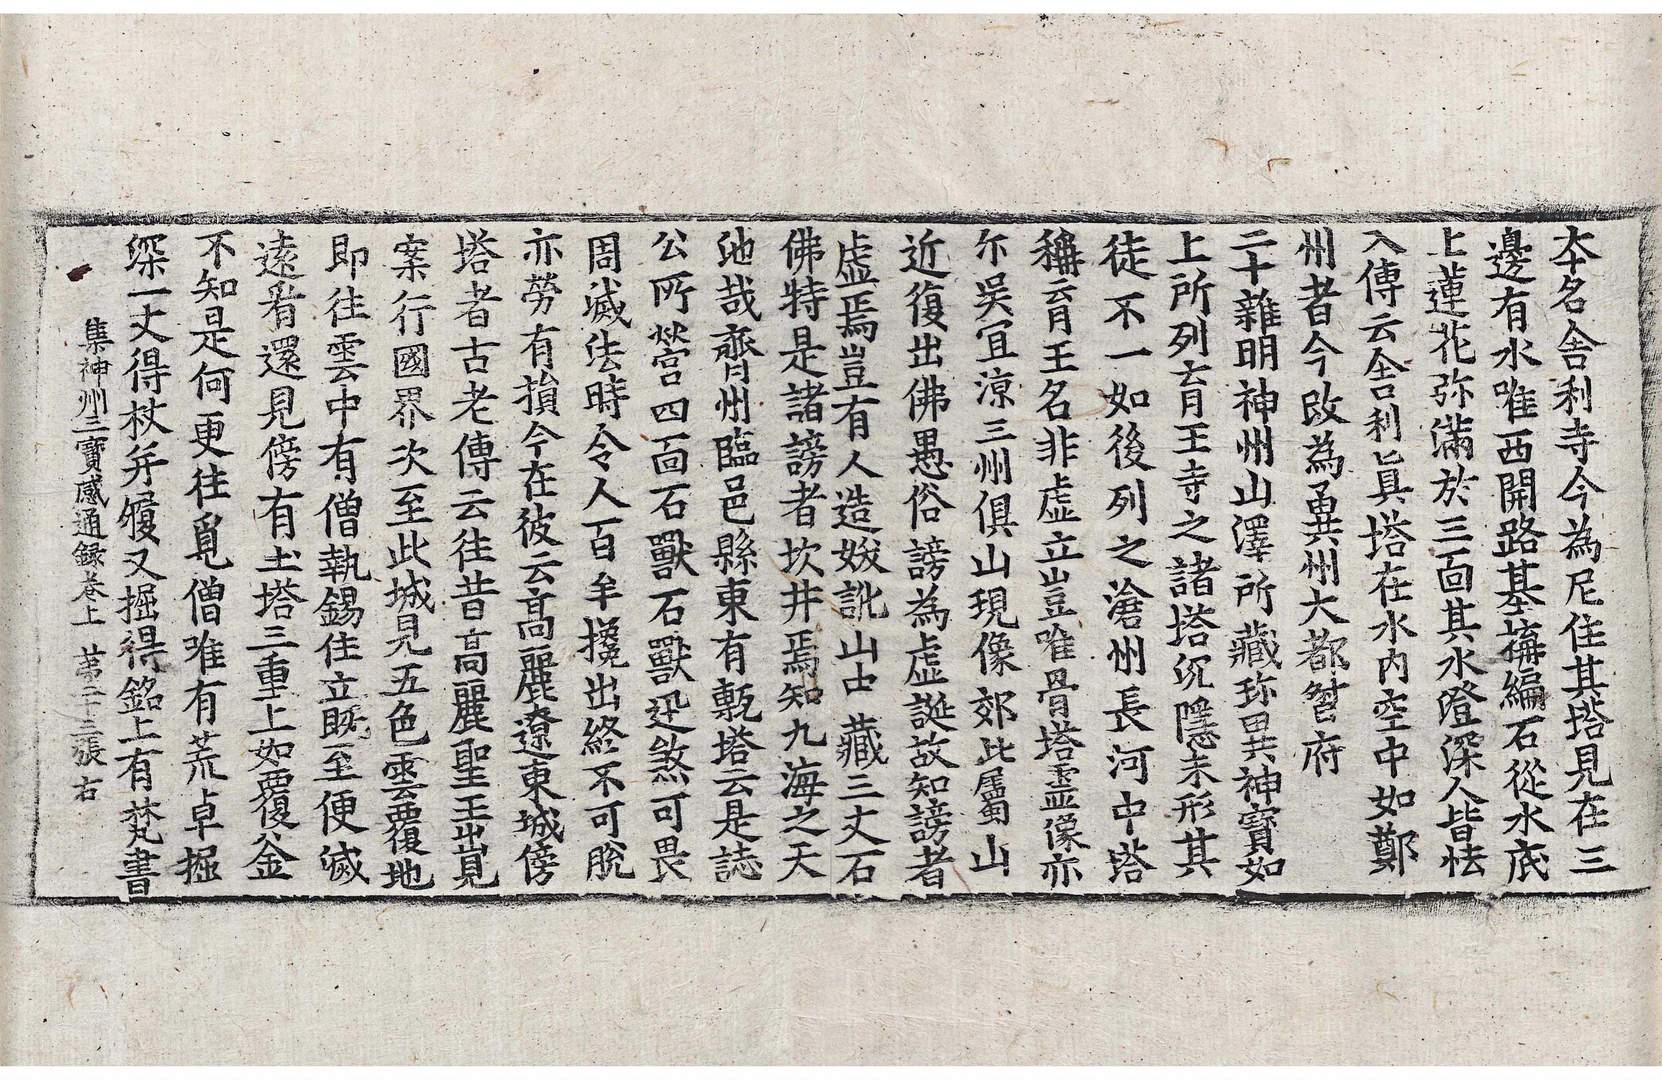 本名舍利寺今為尼住其塔見在三
邊有水唯西開路基塼編石從水底
上蓮花弥滿於三面其水澄深人皆怯
入傳云舍利真塔在水内空中如鄭
州者今改為巽州大都督府
二十雜明神州山澤所藏珎異神寶如
上所列育王寺之諸塔沉隱未形其
徒不一如後列之滄州長河中塔
稱育王名非虛立豈唯骨塔靈像亦
尓吳冝涼三州俱山現像郊此屬蜀山
近復出佛愚俗謗為虛誕故知謗者
虛焉豈有人造妭訛山中藏三丈石
佛特是諸謗者坎井焉知九海之天
池哉齊州臨邑縣東有甎塔云是誌
公所營四面石獸石獸迅煞可畏
周滅法時令人百牟攙出終不可脫
亦勞有損今在彼云高麗遼東城傍
塔者古老傳云往昔高麗聖王出見
案行國界次至此城見五色雲覆地
即往雲中有僧執錫住立既至便滅
遠看還見傍有土塔三重上如覆釜
不知是何更往覓僧唯有荒卓掘
深一丈得杖并履又掘得銘上有梵書
集神州三寶感通録卷上 苐二十三張 右